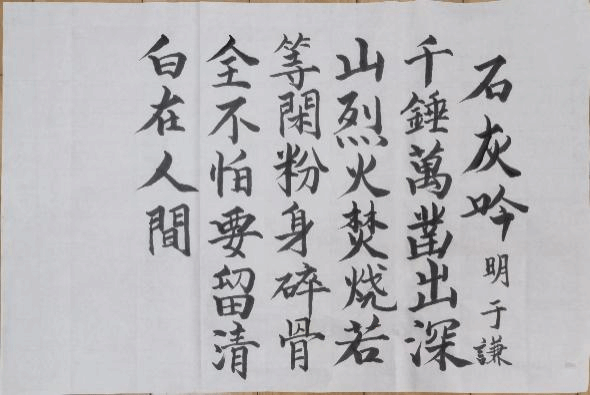 石灰吟 明于謙
千錘萬鑿出深
山烈火焚燒若
等閑粉身碎骨
全不怕要留清
白在人間